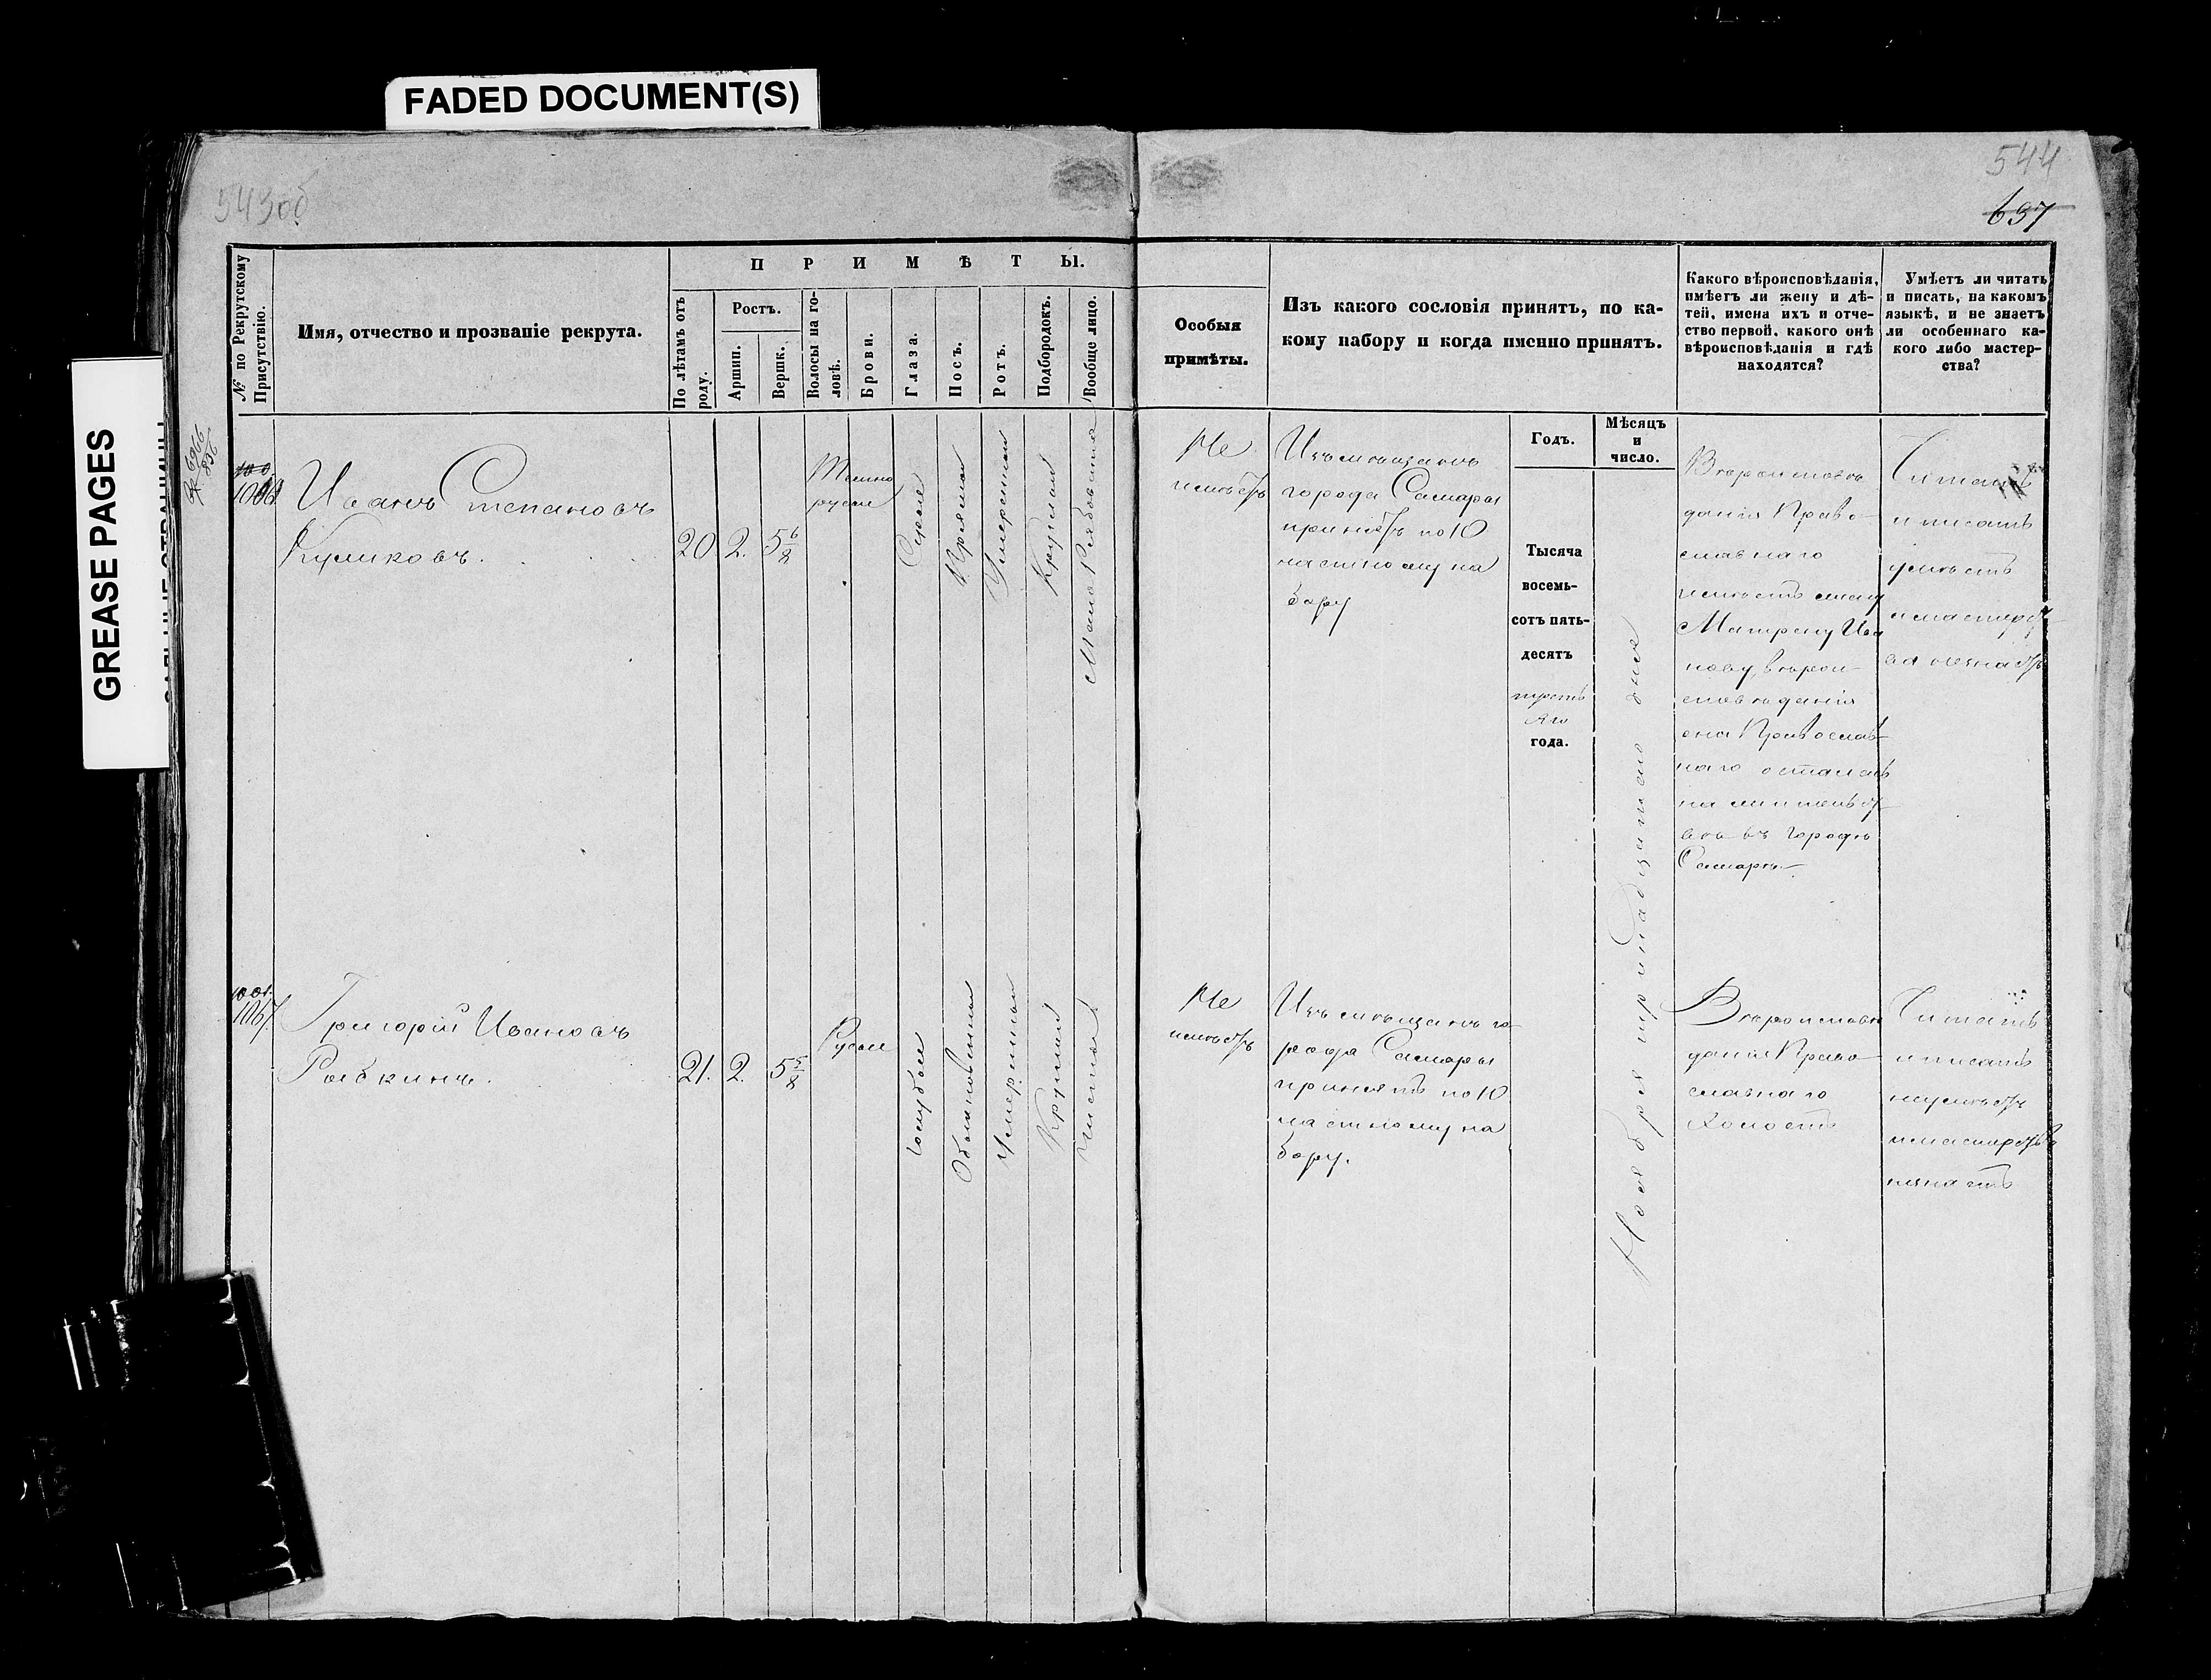 FADED DOCUMENT(S)
GREASE PAGES
543об
544
637
П Р И М Ѣ Т Ы.
№ по Рекрутскому
Присутствію.
Имя, отчество и прозваніе рекрута.
По лѣтамъ отъ
роду.
Ростъ.
Аршин.
Вершк.
Волосы на го-
ловѣ.
Брови.
Глаза.
Носъ.
Ротъ.
Подбородокъ.
Вообще лицо.
Особыя
примѣты.
Изъ какого сословія принятъ, по ка-
кому набору и когда именно принятъ.
Какого вѣроисповѣданія,
имѣетъ ли жену и дѣ-
тей, имена ихъ и отче-
ство первой, какого онѣ
вѣроисповѣданія и гдѣ
находятся?
Умѣетъ ли читать
и писать, на какомъ
языкѣ, и не знаетъ
ли особеннаго ка-
кого либо мастер-
ства?
Годъ.
Мѣсяцъ
и
число.
Тысяча
восемь-
сотъ пять-
десятъ
третьяго
года.
Ноября тринадцатаго дня
1066
Иванъ Степановъ
Куликовъ.
20
2.
5 6/8
Темно
русые
Серые
Прямой
Умеренной
Круглой
Мало Рябовато
Не
имѣетъ
Изъ мѣщанъ
города Самары
принятъ по 10
частному на
бору
Вѣроисповѣ
данія Право
славнаго
имѣетъ жену
Матрену Ива
нову, вѣрои
сповѣданія
она Православ
наго осталась
на жительст
вѣ въ городѣ
Самарѣ.
Читать
и писать
умѣетъ
и мастерст
ва незнаетъ
1067.
Григорій Ивановъ
Рябкинъ.
21.
2.
5 5/8
Русые
голубые
Обыкновенной
Умеренной
Круглой
чистое
Не
имѣетъ
Изъ мѣщанъ го
рода Самары
принятъ по 10
частному на
бору.
Вѣроисповѣ
данія Право
славнаго
Холостъ
Читать
и писать
неумѣетъ
и мастерства
незнаетъ